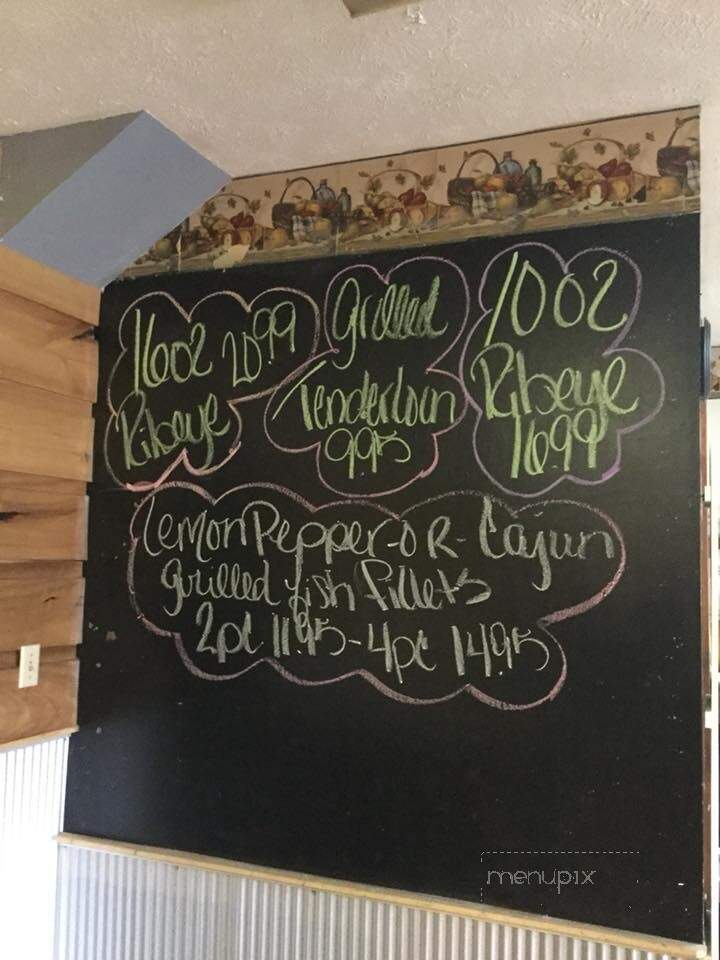 16oz 20.99
Ribeye
Grilled
Tenderloin
9.95
10oz
Ribeye
16.99
Lemon Pepper-OR-Cajun
grilled fish fillets
2pc 11.95-4pc 14.95
menupix